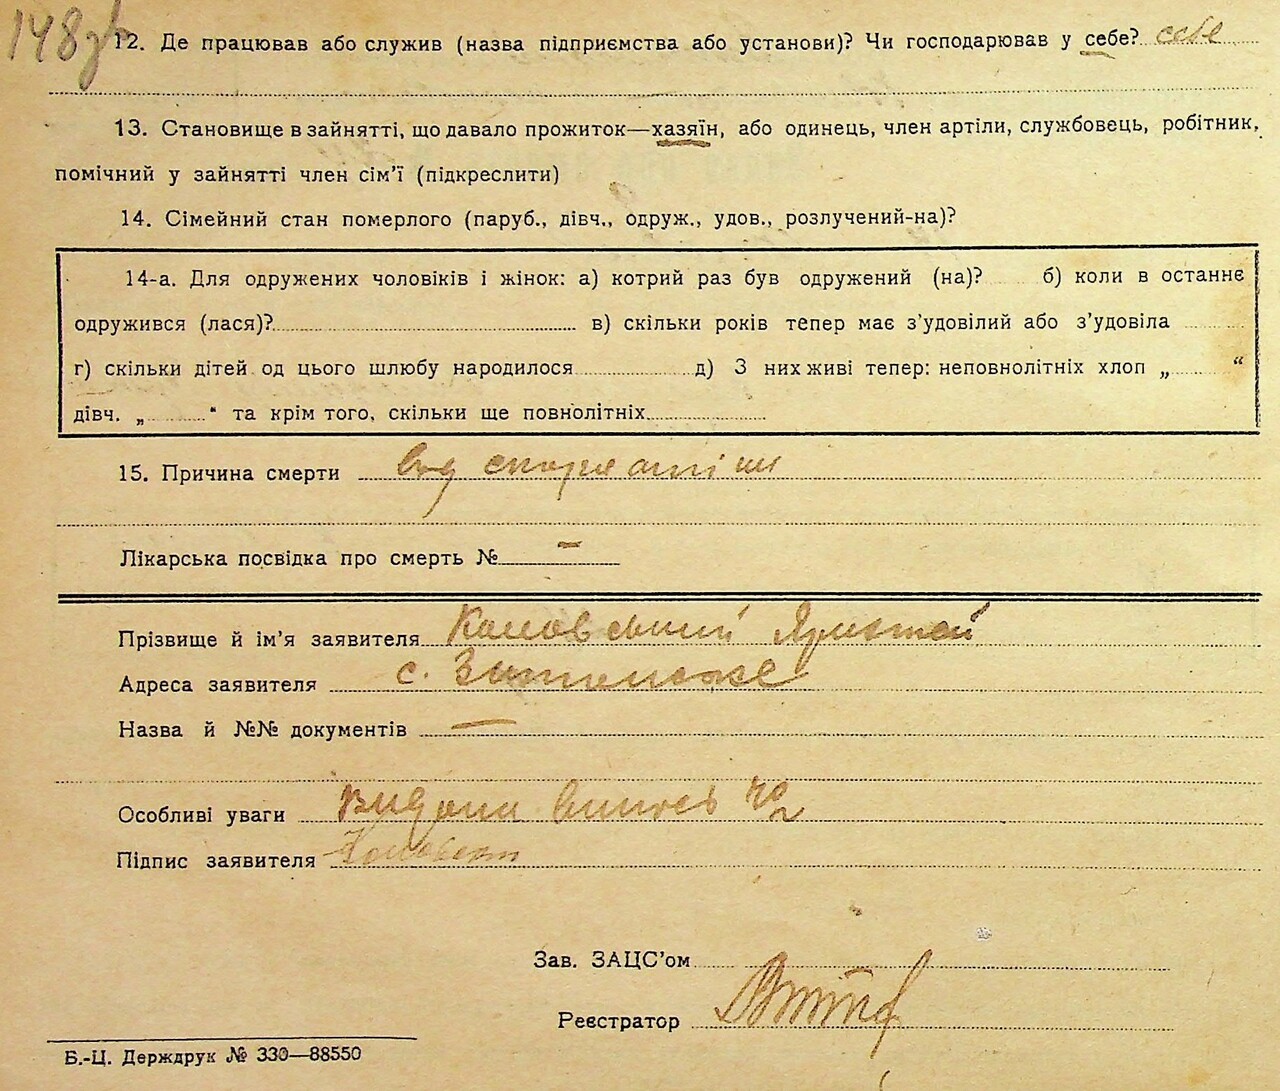 148зв
12. Де працював або служив (назва підприємства або установи)? Чи господарював у себе? себе
13. Становище в зайнятті, що давало прожиток—хазяїн, або одинець, член артіли, службовець, робітник,
помічний у зайнятті член сім’ї (підкреслити)
14. Сімейний стан померлого (паруб., дівч., одруж., удов., розлучений-на)?
14-а. Для одружених чоловіків і жінок: а) котрий раз був одружений (на)? б) коли в останнє
одружився (лася)? в) скільки років тепер має з’удовілий або з’удовіла
г) скільки дітей од цього шлюбу народилося д) З них живі тепер: неповнолітніх хлоп „ “
дівч. „ “ та крім того, скільки ще повнолітніх
15. Причина смерти від
Лікарська посвідка про смерть № –
Прізвище й ім’я заявителя
Адреса заявителя с.
Назва й №№ документів —
Особливі уваги
Підпис заявителя
Зав. ЗАЦС’ом
Реєстратор
Б.-Ц. Держдрук № 330—88550